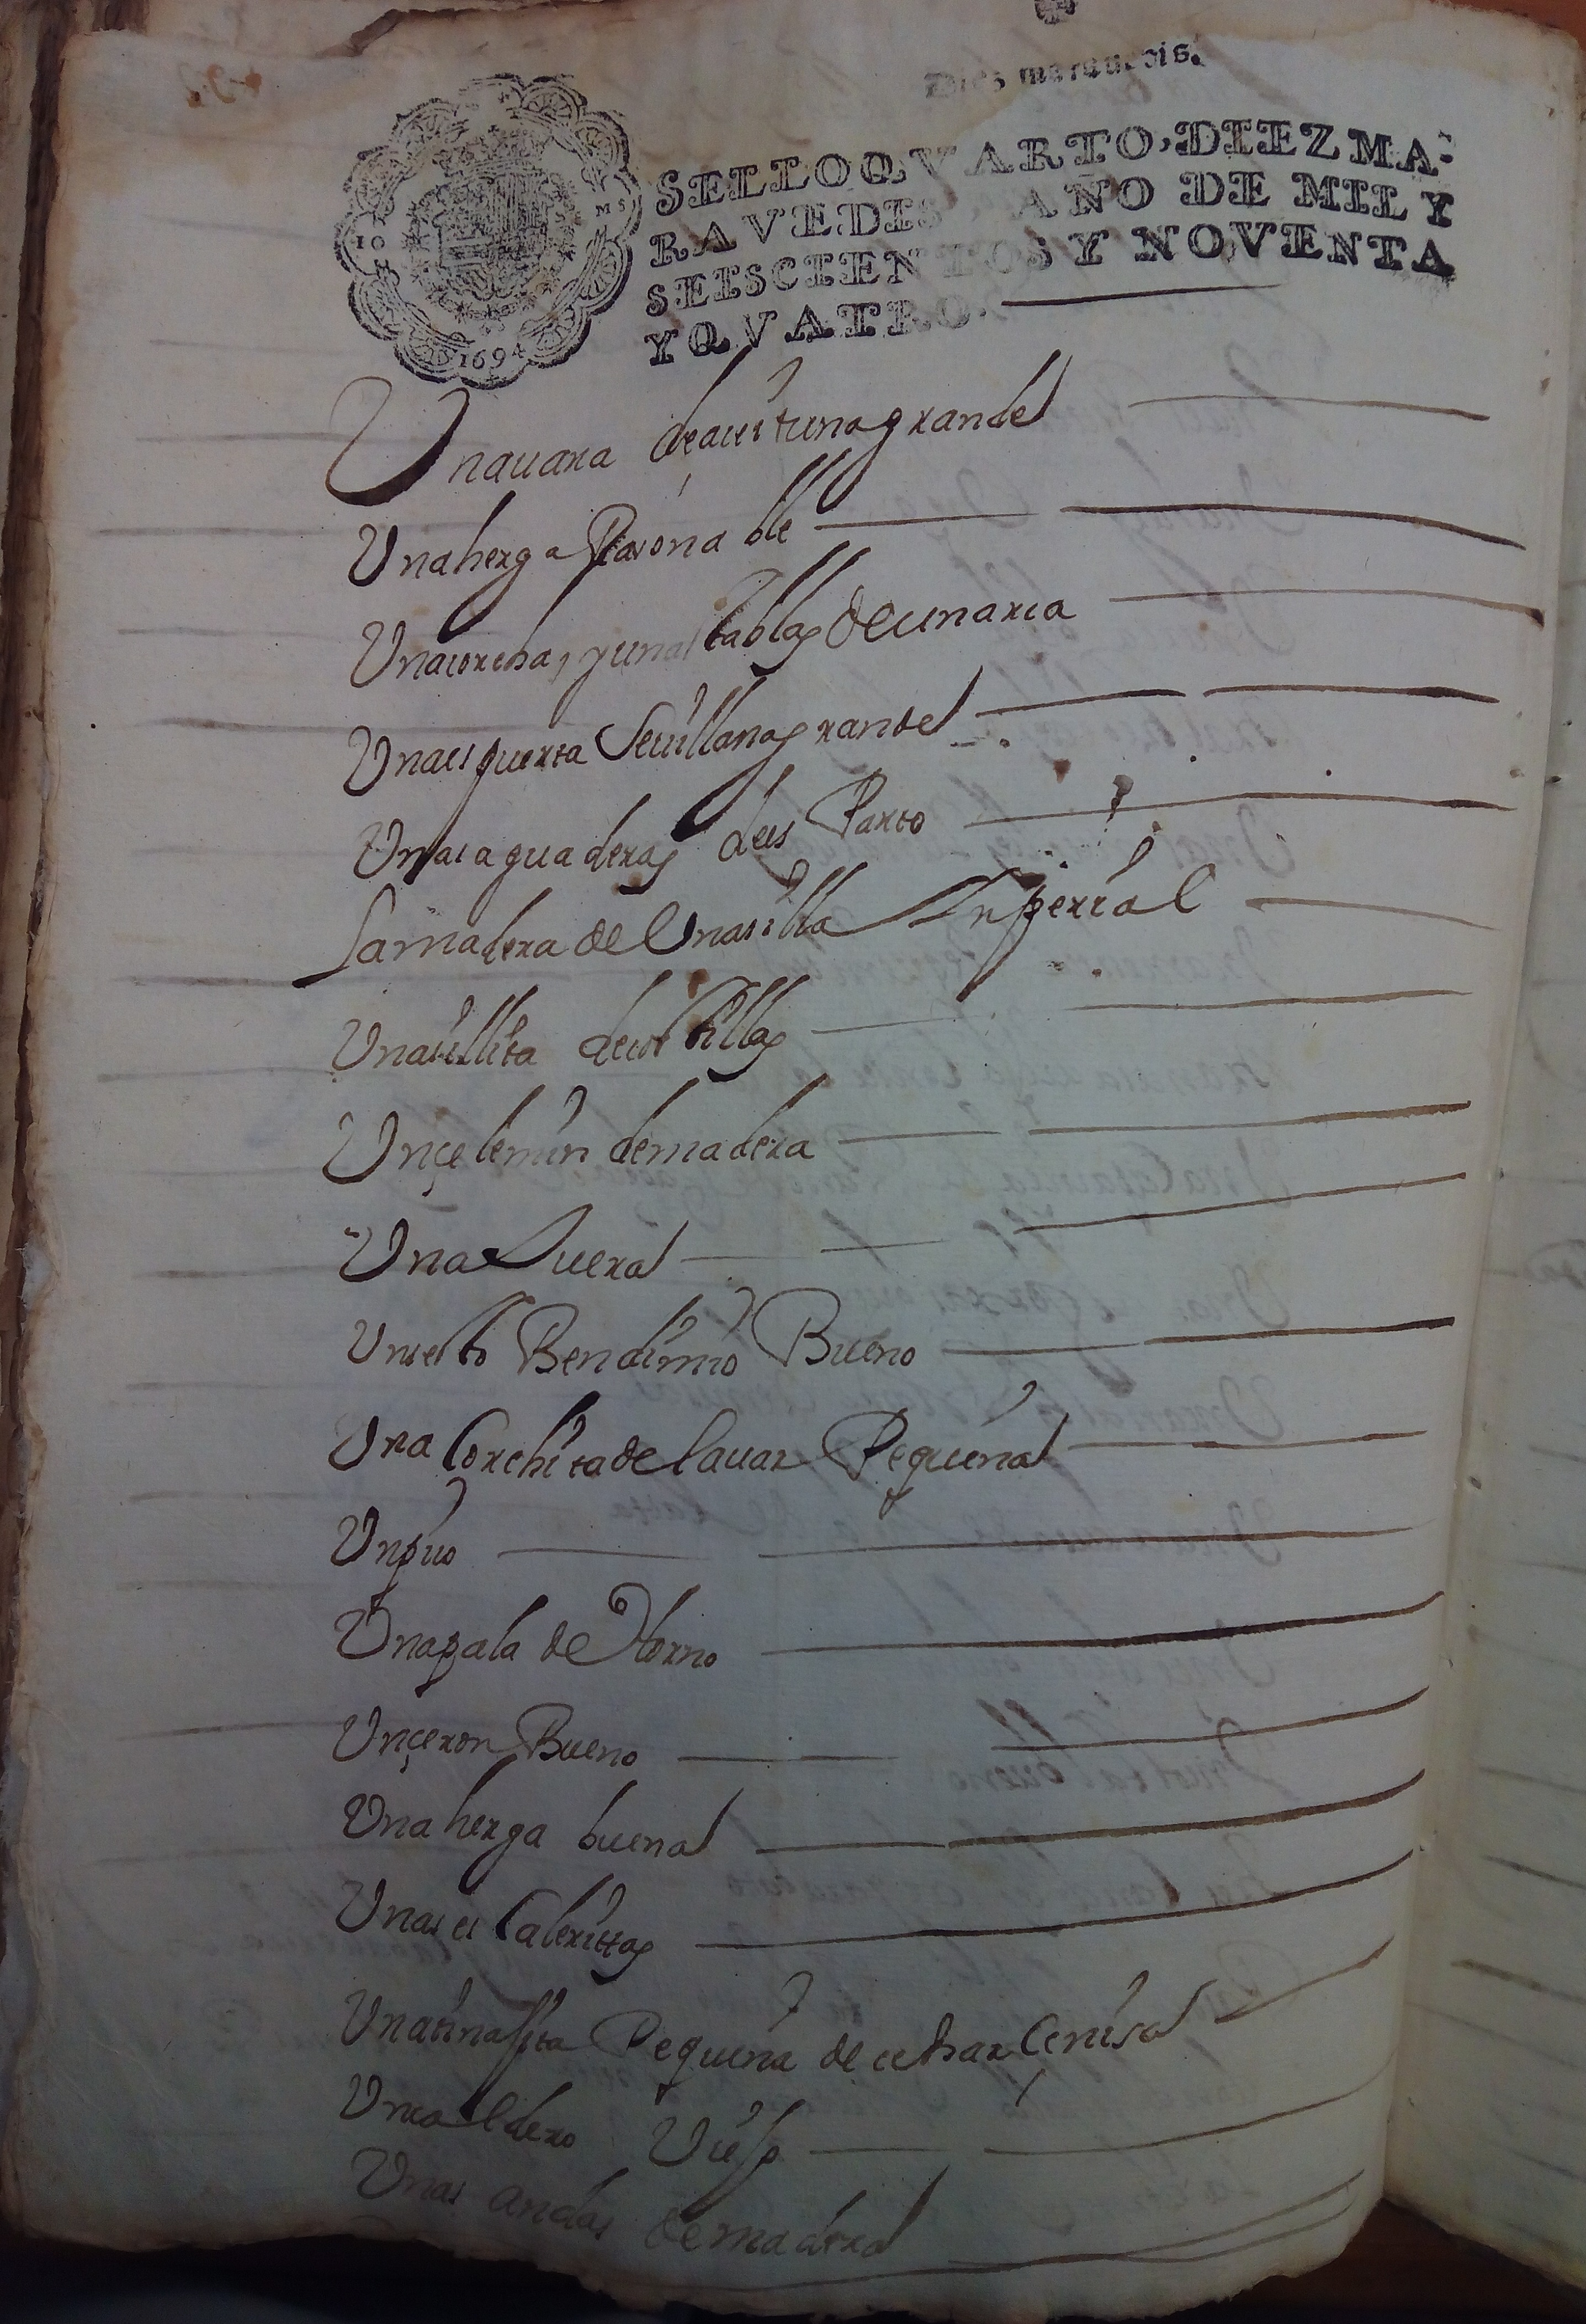 Diez marauedis.
SELLO QVARTO, DIEZ MA-
RAVEDIS, AÑO DE MIL Y
SEISCIENTOS Y NOVENTA
Y QVATRO.
1694
Una uara de aceituna grande
Una herga Rasonable
Una corcha, y unas tablas de
Una espuerta Seuillana grande
Unas aguaderas de esparto
La madera de Una silla Inperial
Una sillita de costillas
Un çelemin de madera
Una
Un sesto Bendimio Bueno
Una Corchita de lauar Pequeña
Un puo
Una pala de Horno
Un çeron Bueno
Una herga buena
Unas escaleritas
Una tinagita Pequeña de echar Cenisa
Un caldero Viejo
Unas andas de madera